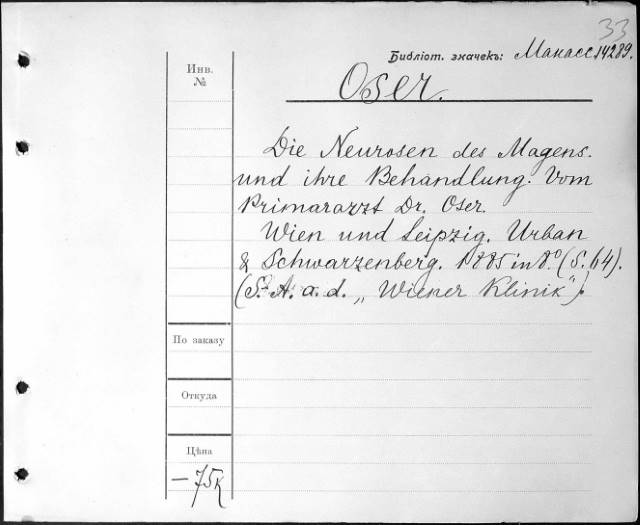 33
Библіот. значекъ: Манасс 14289.
Инв.
№
Oser.
Die Neurosen des Magens.
und ihre Behandlung. Vom
Primararzt Dr. Oser.
Wien und Leipzig. Urban
& Schwarzenberg. 1885 in 8.° (S. 64).
(S. A. a. d. „Wiener Klinik").
По заказу
Откуда
Цѣна
— 75 к